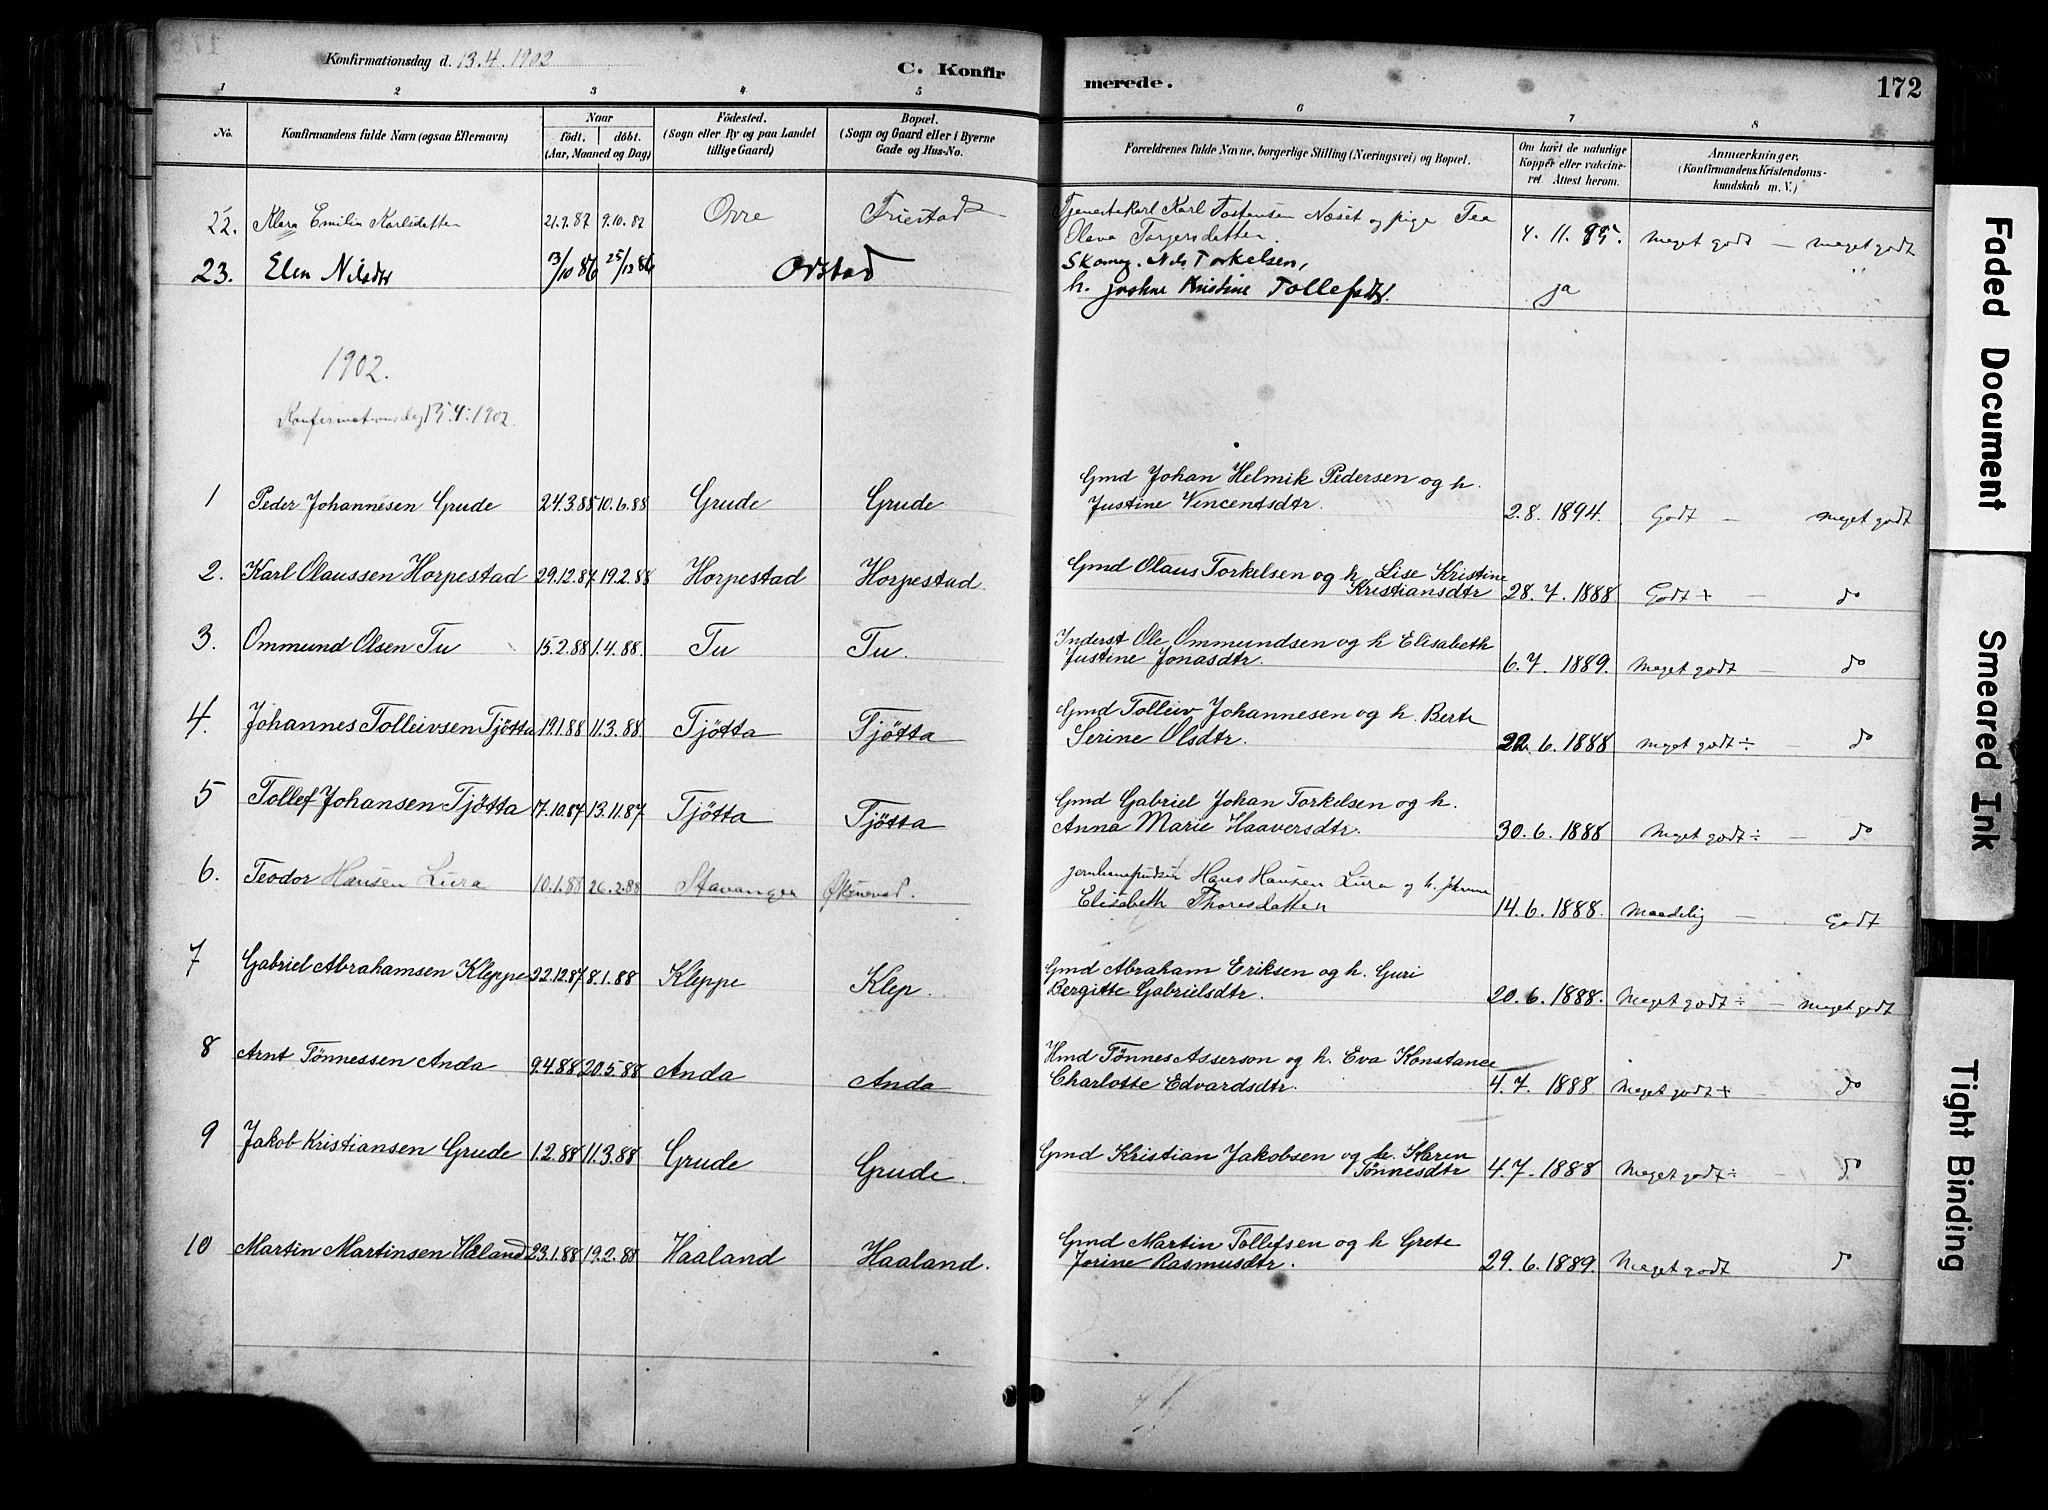 Konfirmationsdag d. 13.4.1902
C. Konfir
merede.
172
1 2 3 4 5 6 7 8
No.
Konfirmandens fulde Navn (ogsaa Efternavn)
Naar
födt. döbt.
(Aar, Maaned og Dag)
Födested.
(Sogn eller By og paa Landet
tillige Gaard)
Bopæl.
(Sogn og Gaard eller i Byerne
Gade og Hus-No.
Forældrenes fulde Navne, borgerlige Stilling (Næringsvei) og Bopæl.
Om havt de naturlige
Kopper eller vakcine-
ret. Attest herom.
Anmærkninger.
(Konfirmandens Kristendoms-
kundskab m. V.)
22. Klara Emilie Karlsdatter 21.9.87 9.10.87 Orre Friestad
Tjenestekarl Karl Tostensen Næset og pige Tea
Olava Torgersdatter. 4.11.95. Meget godt — meget godt
23. Elen Nilsdtr 13/10 86 25/12 86 Orstad
Skomag. Nils Torkelsen,
h. Kristine Tollefsdtr. ja "
1902.
Konfermationsdag 4.1902.
1 Peder Johannesen Grude 24.3.88 10.6.88 Grude Grude
Gmd Johan Helmik Pedersen og h.
Justine Vincentsdtr. 2.8.1894. Godt — meget godt
2. Karl Olaussen Horpestad 29.12.87 19.2.88 Horpestad Horpestad.
Gmd Olaus Torkelsen og h. Lise Kristine
Kristiansdtr 28.7.1888 Godt + — do
3. Ommund Olsen Tu 15.2.88 1.4.88. Tu Tu.
Inderst Ole Ommundsen og h Elisabeth
Justine Jonasdtr. 6.7.1889. Meget godt — do
4. Johannes Tolleivsen Tjötta 19.1.88 11.3.88. Tjötta Tjötta
Gmd Tolleiv Johannesen og h. Berte
Serine Olsdtr. 22.6.1888 Meget godt ÷ — do
5 Tollef Johansen Tjötta 17.10.87 13.11.87 Tjötta Tjötta
Gmd Gabriel Johan Torkelsen og h.
Anna Marie Haaversdtr. 30.6.1888 Meget godt ÷ — do
6. Teodor Hansen Lura 10.1.88 26.2.88 Stavanger
Hans Hansen Lura og h.
Elisabeth Thoresdatter 14.6.1888. Maadelig — Godt
7 Gabriel Abrahamsen Kleppe 22.12.87 8.1.88 Kleppe Klep.
Gmd Abraham Eriksen og h. Guri
Bergitte Gabrielsdtr. 20.6.1888. Meget godt ÷ — meget godt
8 Arnt Tönnessen Anda 9.4.88 20.5.88 Anda Anda
Hmd Tönnes Asserson og h. Eva Konstance
Charlotte Edvardsdtr. 4.7.1888. Meget godt + do
9 Jakob Kristiansen Grude 1.2.88 11.3.88 Grude Grude.
Gmd Kristian Jakobsen og h. Karen
Tönnesdtr 4.7.1888 Meget godt ÷ — do
10 Martin Martinsen Haaland 23.1.88 19.2.88 Haaland Haaland.
Gmd Martin Tollefsen og h Grete
Jorine Rasmusdtr. 29.6.1889. Meget godt do
Faded Document
Smeared Ink
Tight Binding